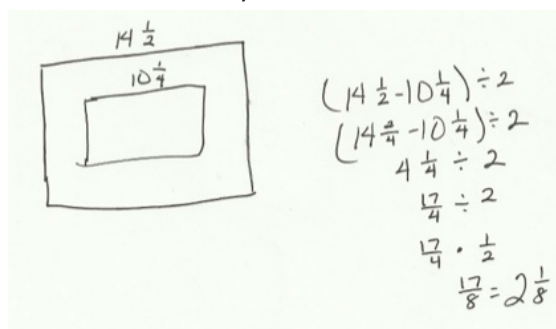 14 1/2
10 1/4
(14 1/2 - 10 1/4) ÷ 2
(14 2/4 - 10 1/4) ÷ 2
4 1/4 ÷ 2
17/4 ÷ 2
17/4 · 1/2
17/8 = 2 1/8